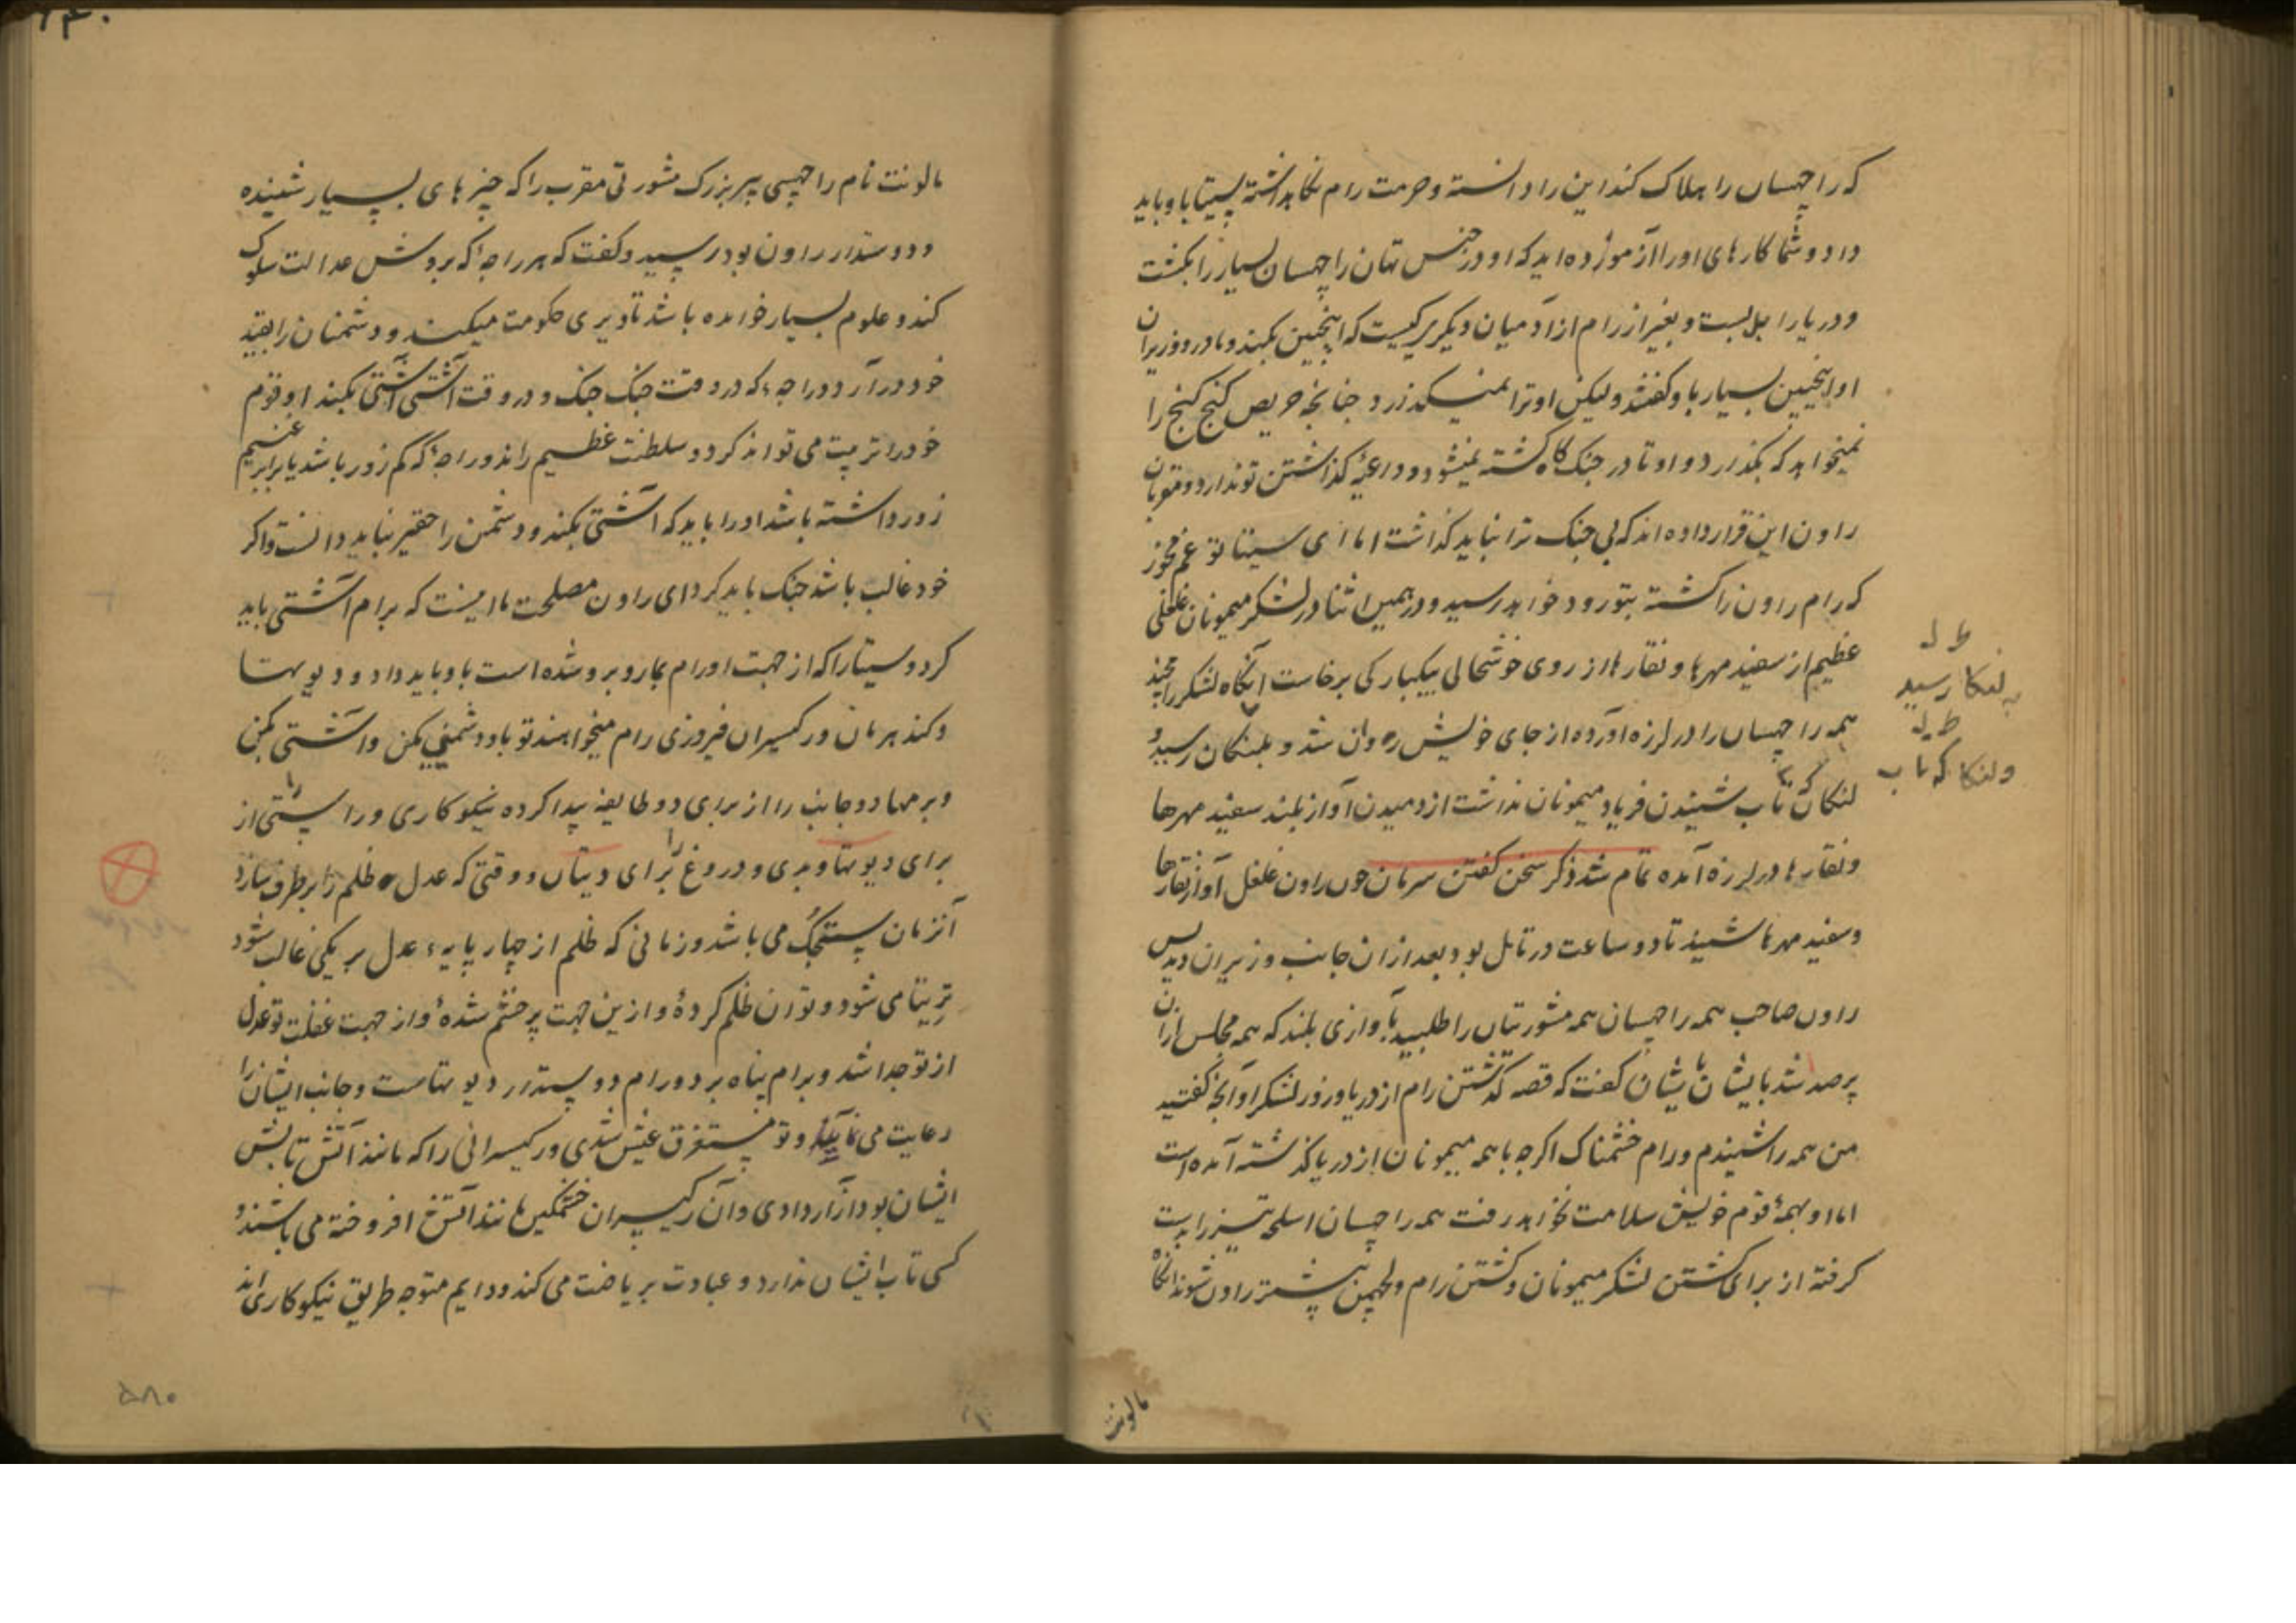 که راچهسان را هلاک کند این را دانسته و حرمت رام نگاهداشته سیتا باو باید
داد و شما کارهای او را آزموزده‌اید که او در جنس تهان راچهسان بسیار را بکشت
و دریا را پل بست و بغیر از رام از آدمیان دیگر کیست که اینچنین بکند و مادر و وزیران
او اینچنین بسیار باو گفتند ولیکن او ترا نمیگذرد چنانچه حریص گنج گنج را
نمیخواهد که بگذرد و او تا در جنگ گاه کشته نمیشود داعیهٔ گذاشتن تو ندارد و مقربان
راون این قرار داده‌اند که بی جنگ ترا نباید گذاشت اما ای سیتا تو غم مخور
که رام راون را کشته بتو زود خواهد رسید و در همین اثنا در لشکر میمونان غلغلی
عظیم از سفید مهرها و نقارها از روی خوشحالی بیکبارگی برخاست آنگاه لشکر رامچند
همه راچهسان را در لرزه آورده از جای خویش روان شد و بلنکان رسید و
لنکان تاب شنیدن فریاد میمونان نداشت از دمیدن آواز بلند سفید مهرها
و نقارها در لرزه آمده تمام شد ذکر سخن گفتن سرمان چون راون غلغل آواز نقارها
و سفید مهرها شنید تا دو ساعت در تامل بود بعد از آن جانب وزیران دید پس
راون صاحب همه راچهسان همه مشورتیان را طلبید بآوازی بلند که همه مجلس ازان
پرصد شد بایشان گفت که قصه گذشتن رام از دریا و زور لشکر او آنچه گفتید
من همه را شنیدم و رام خشمناک اگرچه با همه میمونان از دریا گذشته آمده است
اما او بهمهٔ قوم خویش سلامت نخواهد رفت همه راچهسان اسلحه تیز را بدست
گرفته از برای کشتن لشکر میمونان و کشتن رام و لچهمن پیشتر راون شوند آنگاه
مالونت
به لنکا رسید
و لنکا که تاب
مالونت نام راچهسی پیر بزرگ مشورتی مقرب را که چیزهای بسیار شنیده
و دوستدار راون بود رسید و گفت که هر راجهٔ که بروش عدالت سلوک
کند و علوم بسیار خوانده باشد تا دیری حکومت میکند و دشمنان را بقید
خود درآرد و راجهٔ که در وقت جنگ جنگ و در وقت آشتی آشتی بکند او قوم
خود را تربیت می‌تواند کرد و سلطنت عظیم راند و راجهٔ که کم زور باشد یا برابر غنیم
زور داشته باشد او را باید که آشتی بکند و دشمن را حقیر نباید دانست و اگر
خود غالب باشد جنگ باید کرد ای راون مصلحت ما اینست که برام آشتی باید
کرد و سیتا را که از جهت او رام بما روبرو شده است باو باید داد و دیوتها
و کندهربان و رکهیسران فیروزی رام میخواهند تو باو دشمنی مکن و آشتی بکن
و برمها دو جانب را از برای دو طایفه پیدا کرده نیکوکاری و راستی را از
برای دیوتها و بدی و دروغ را برای دیتان و وقتی که عدل ظلم را برطرف سازد
آنزمان ستجگ می‌باشد و زمانی که ظلم از چهار پایهٔ عدل بر یکی غالب شود
تریتا می‌شود و تو آن ظلم کردهٔ و ازین جهت پرخشم شدهٔ و از جهت غفلت تو عدل
از تو جدا شد و برام پناه برد و رام دوستدار دیوتهاست و جانب ایشان را
رعایت می‌نماید و تو مستغرق عیش شدی و رکهیسرانی را که مانند آتش تابش
ایشان بود آزار دادی و آن رکهیسران خشمگین مانند آتش افروخته می‌باشند و
کسی تاب ایشان ندارد و عبادت بریاضت می‌کنند و دایم متوجه طریق نیکوکاری‌اند
۵۸۰